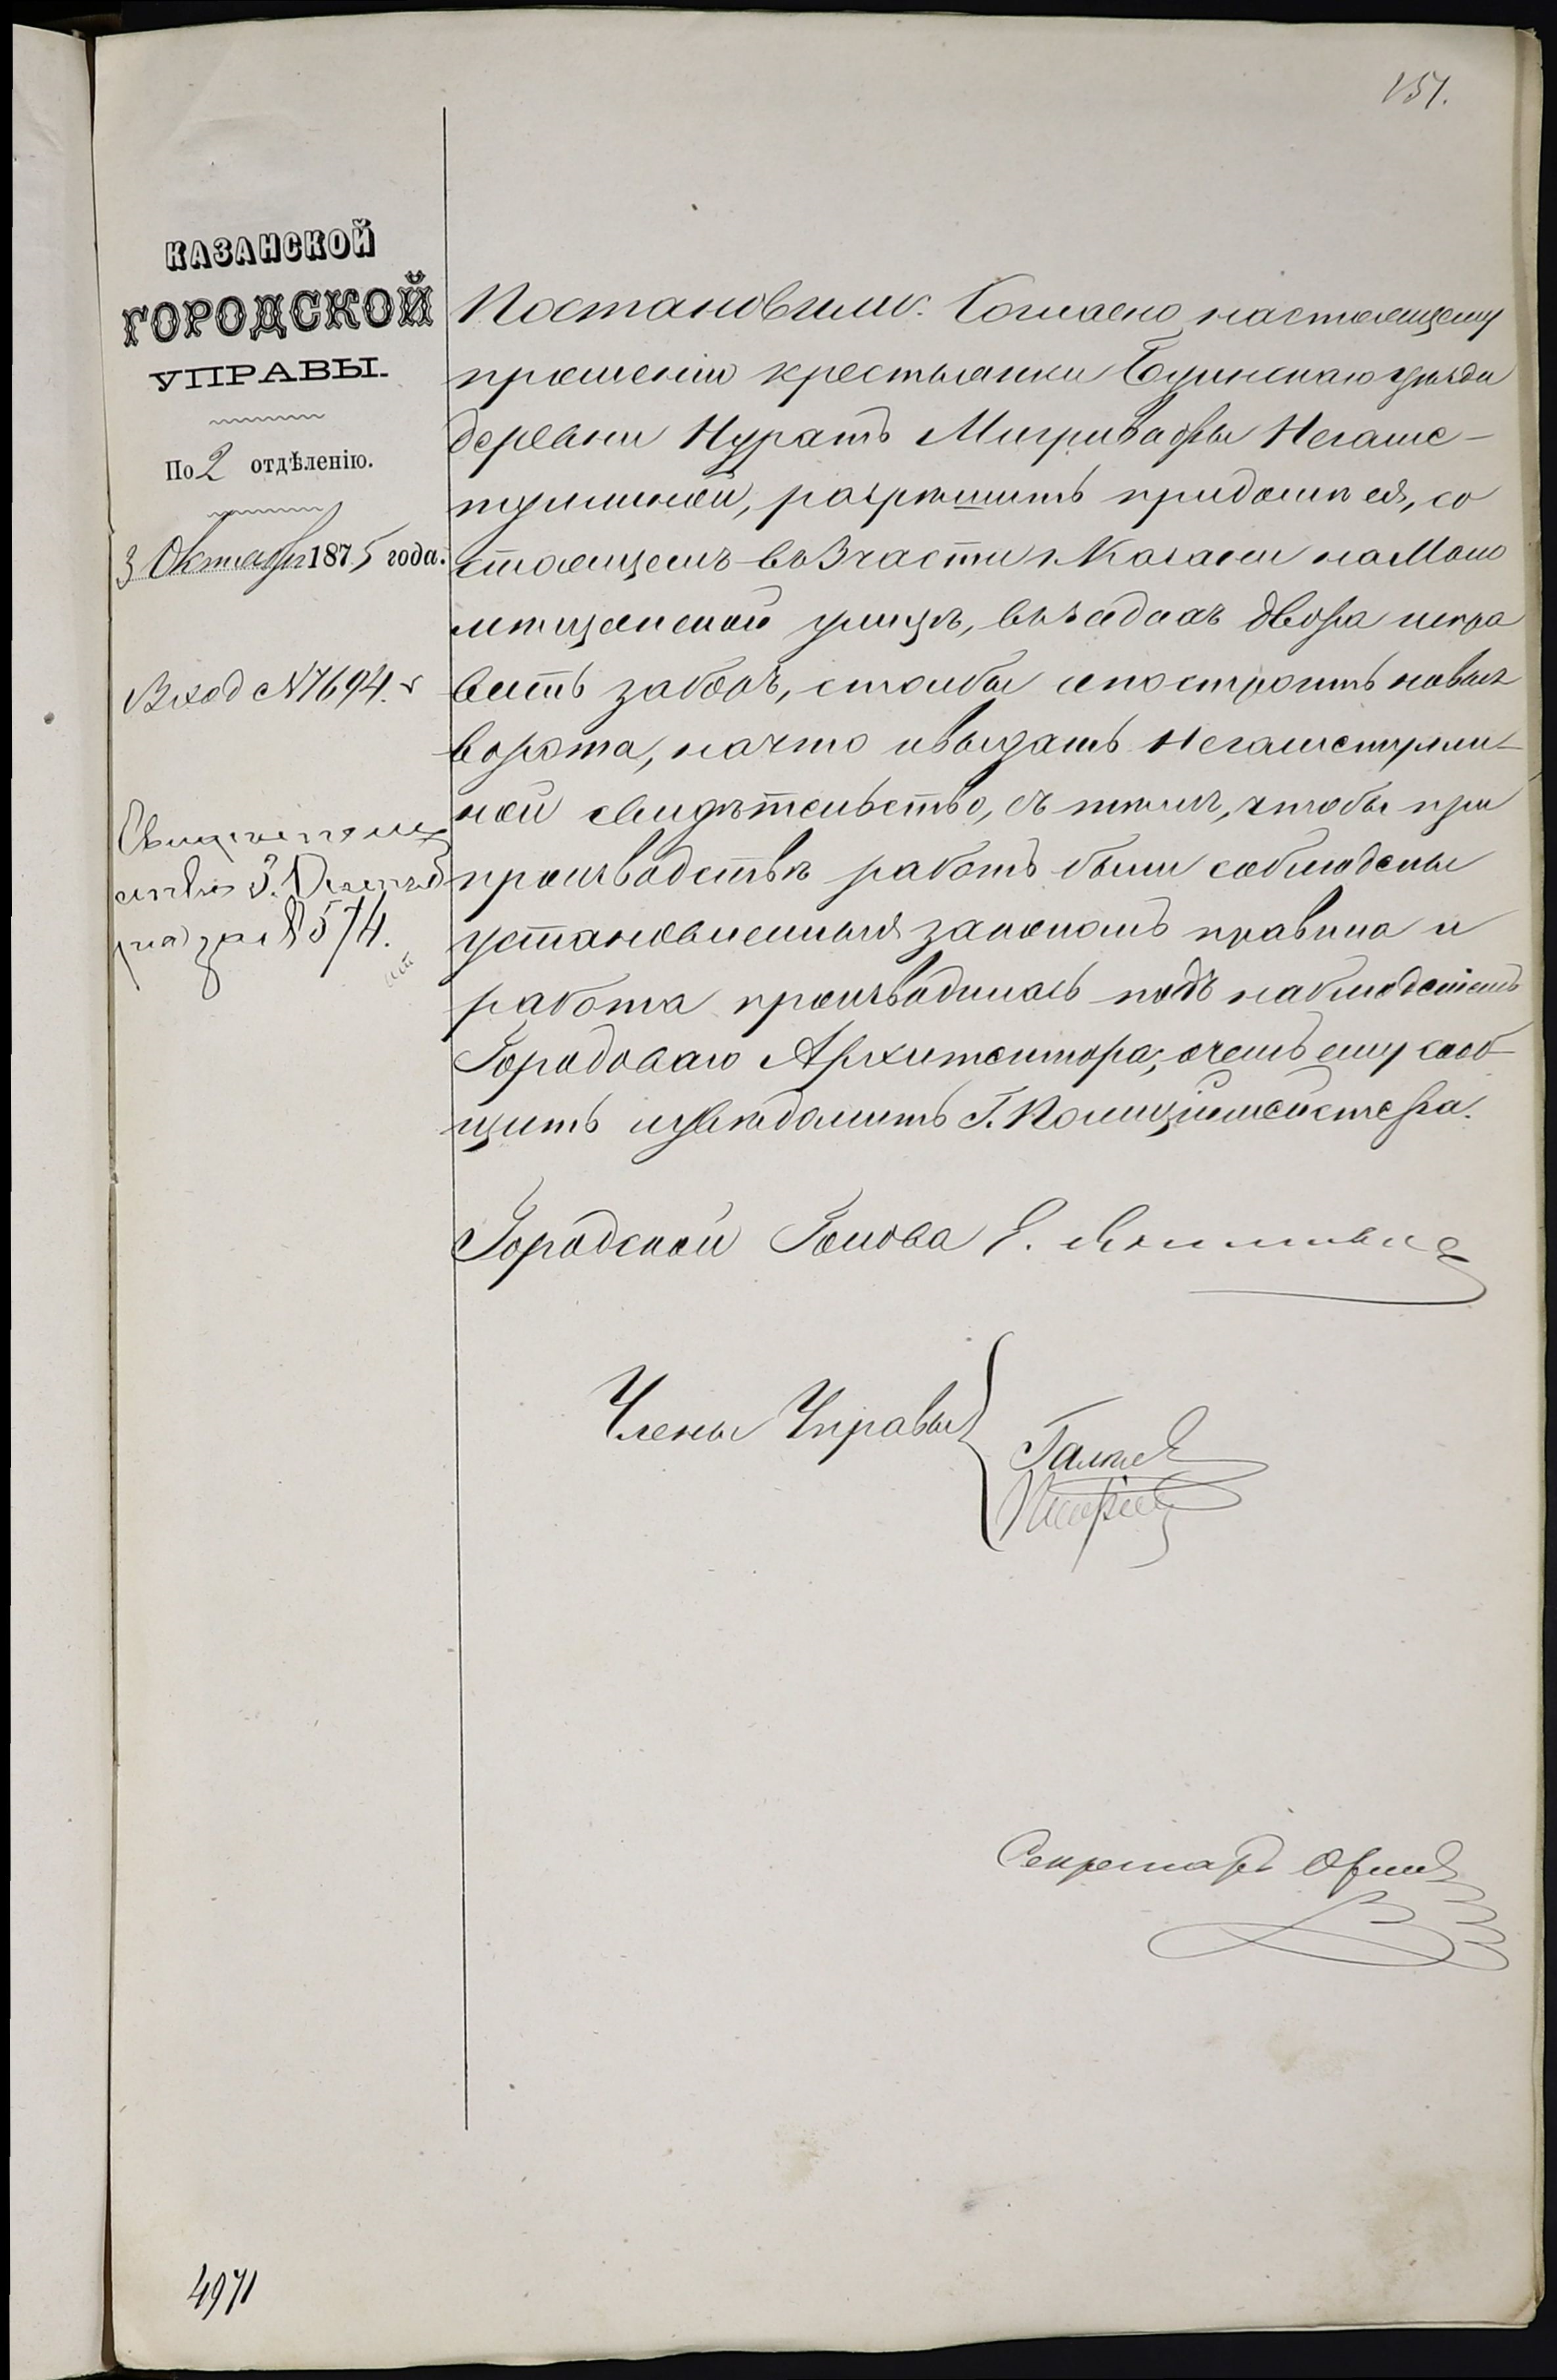 151.
КАЗАНСКОЙ
ГОРОДСКОЙ
УПРАВЫ.
По 2 отдѣленію.
3 Октября 1875 года.
Вход №7694.
Свидѣтель
ство
за № 8574.
Постановили: Согласно настоящему
прошенію крестьянки Буинскаго уѣзда
деревни Нуратъ Мигривафы Негаме-
туллиной, разрѣшить при домѣ ея, со
стоящемъ въ 3 части г. Казани на Мок
ытищенской улицѣ, въ задахъ двора испра
вить заборъ, столбы и построить новыя
ворота, на что и выдать Негаметулли-
ной свидѣтельство, съ тѣмъ, чтобы при
производствѣ работъ были соблюдены
установленныя закономъ правила и
работа производилась подъ наблюденіемъ
Городоваго Архитектора; о чемъ ему сооб-
щить и увѣдомить Г. Полиціймейстера.
Городской Голова Е.
Члены Управы
Галкин
Секретарь
4971